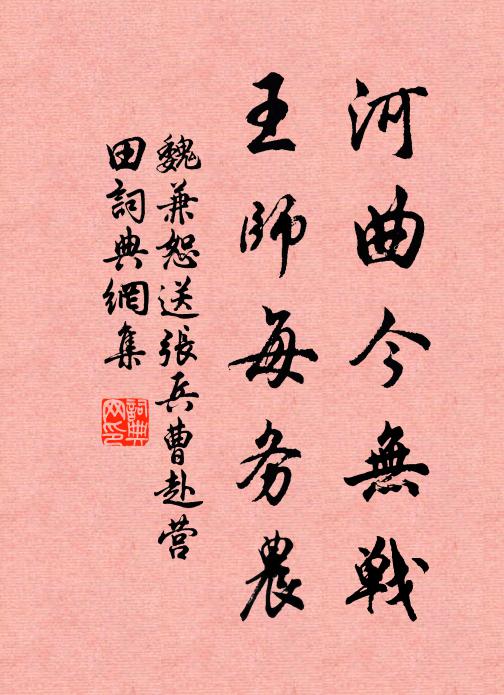 河曲今無戰
王師每务農
魏兼恕送張兵曹赴营
田詞典網集
詞典网印